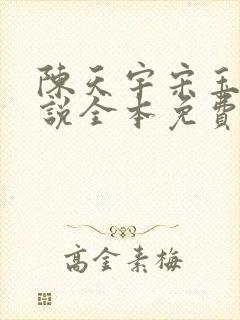 陳天宇宋玉
說全本免費
高金素梅